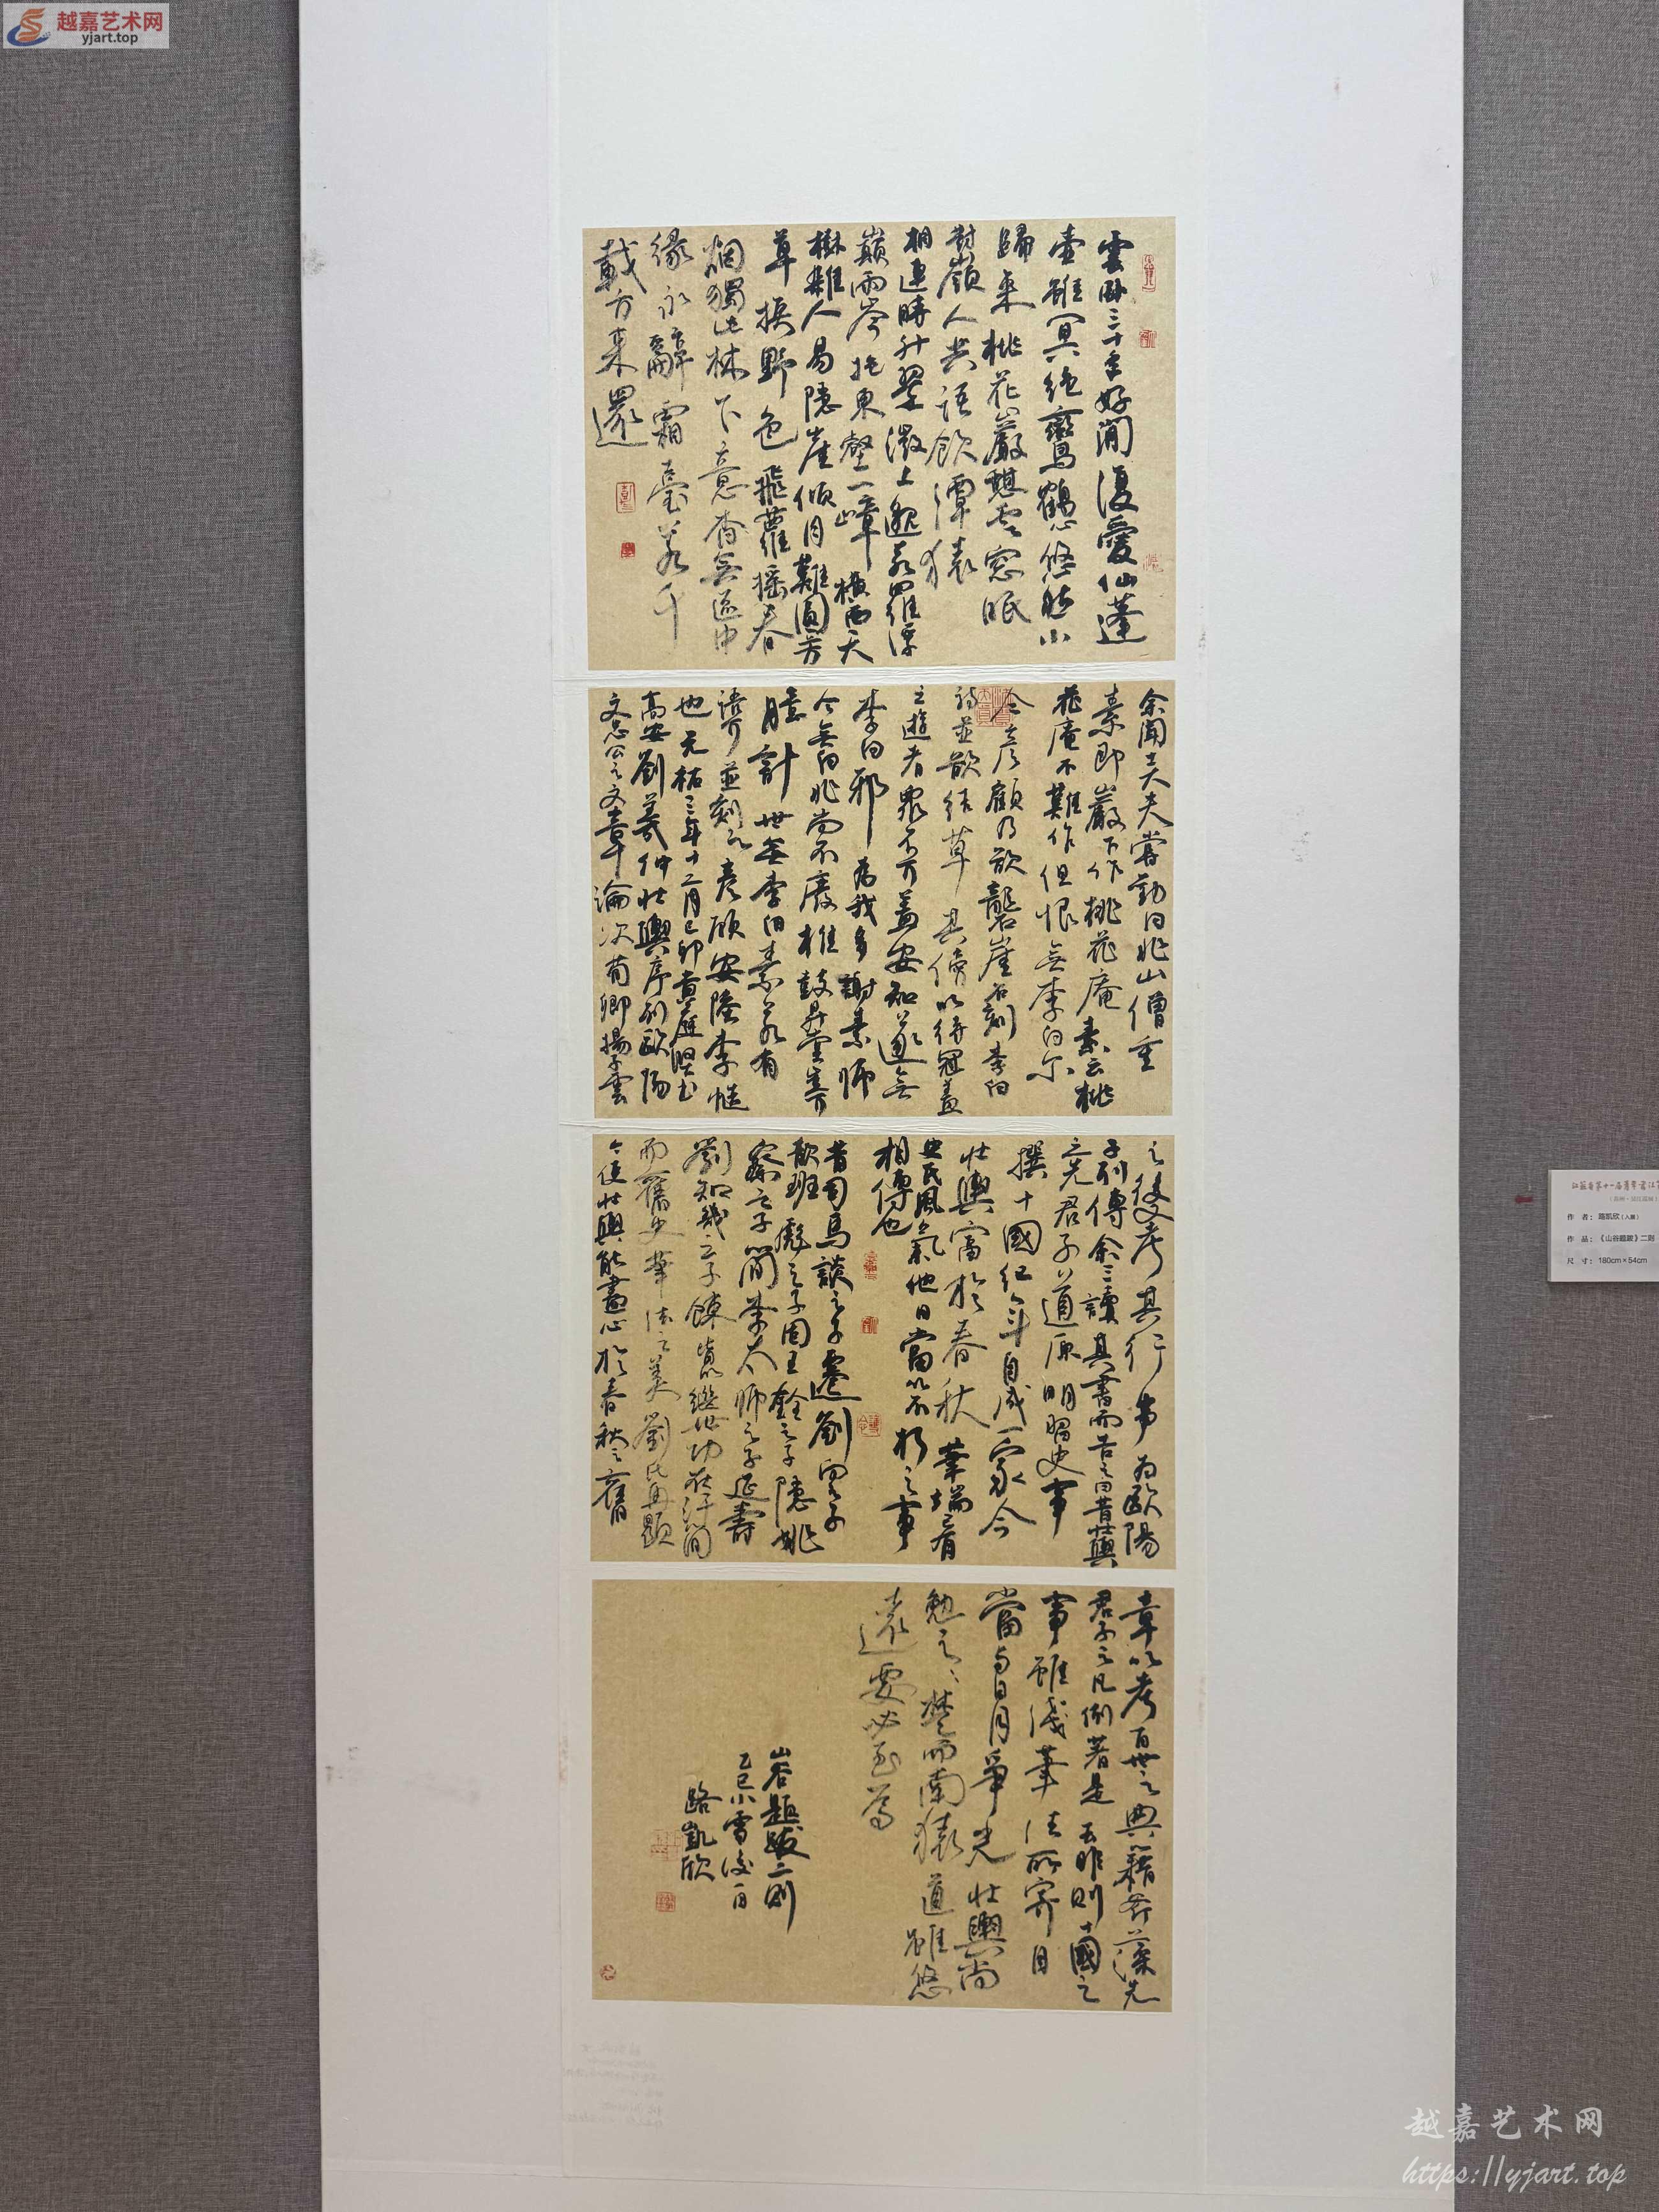 越嘉艺术网
yjart.top
雲臥三十年好閑復愛仙蓬
壺雖冥絕鸞鶴心悠然
歸來桃花巖想雲窓眠
對嶺人共語飲潭猿
相連時升翠微上邈若羅浮
巔兩岑抱東壑一嶂橫西天
樹雜人易隱崖傾月難圓芳
草換野色飛蘿搖春
烟獨此林下意杳無區中
緣永辭霜臺客千
載方來還
余聞士大夫嘗勸白兆山僧重
素即巖下作桃花庵素云桃
花庵不難作但恨無李白爾
今彥顧乃欲礱崖石刻李白
詩並欲結草其傍以待冠蓋
之遊者眾不可蓋安知遂無
李白邪為我多謝素師
今無白兆尚不廢椎鼓升堂
計世無李白素若有
並刻之彥顧安陸李愷
也元祐三年十二月己卯黃庭堅書
高安劉羲仲壯輿序列歐陽
文忠公之文章論次荀卿揚子雲
之後考其行事為歐陽
子列傳余三讀其書而告之曰昔壯輿
之先君子道原明習史事
撰十國紀年自成一家今
壯輿富於春秋筆端已有
史氏風氣他日當以不朽之事
相傳也
昔司馬談之子遷劉向之子
歆班彪之子固王銓之子隱姚
察之子簡李太師之子延壽
劉知幾之子餗皆以繼世功在汗簡
而舊史筆法之美劉氏再顯
今使壯輿能盡心於春秋之舊
章以考百世之典籍斧藻先
君子之凡例著是去非則十國之
事雖淺筆法所寄自
當與日月爭光壯輿尚
勉之楚而南轅道雖悠
遠要必至焉
山谷題跋二則
乙巳小雪後一日
路凱欣
作 者：路凯欣（入展）
作 品：《山谷题跋》二则
尺 寸：180cm×54cm
越嘉艺术网
https://yjart.top